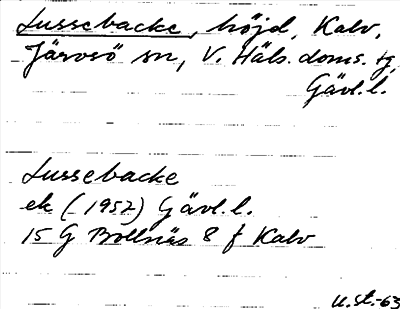 Lussebacke, höjd, Kalv,
Järvsö sn, V. Häls. doms. tg,
Gävl. l.
Lussebacke
ek (1952) Gävl. l.
15 G Bollnäs 8 f Kalv
U.St.-63